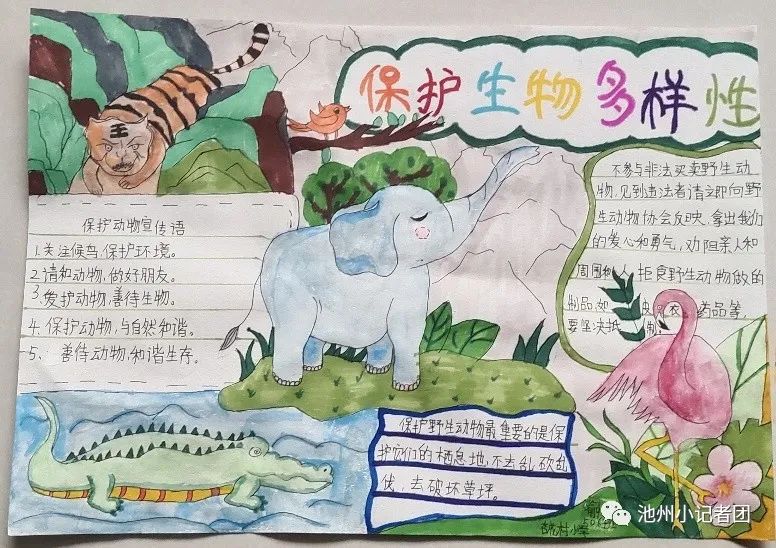 保护生物多样性
保护动物宣传语
1.关注候鸟,保护环境。
2.请和动物,做好朋友。
3.爱护动物,善待生物。
4.保护动物,与自然和谐。
5、善待动物,和谐生存。
不参与非法买卖野生动
物,见到违法者请立即向野
生动物协会反映,拿出我们
的爱心和勇气,劝阻亲人和
周围 人拒食野生动物做的
制品,如 皮 衣、药品等,
要坚决抵制。
保护野生动物最重要的是保
护它们的栖息地,不去乱砍乱
伐,去破坏草坪。
池州小记者团